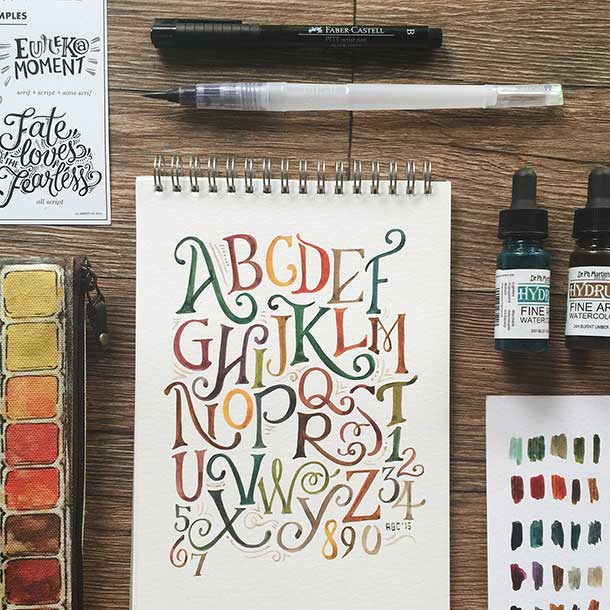 MPLES
EUREK@
MOMENT
serif + script + sans serif
Fate
loves
THE
Fearless
all script
FABER-CASTELL
PITT artist pen
B
ABCDEF
GHIJKLM
NOPQRST
UVWXYZ
1234
567
890
ABC'15
Dr. Ph. Martin's
HYDRUS
FINE ART
WATERCOLOR
Dr. Ph. Martin's
HYDRUS
FINE ART
WATERCOLOR
BURNT UMBER